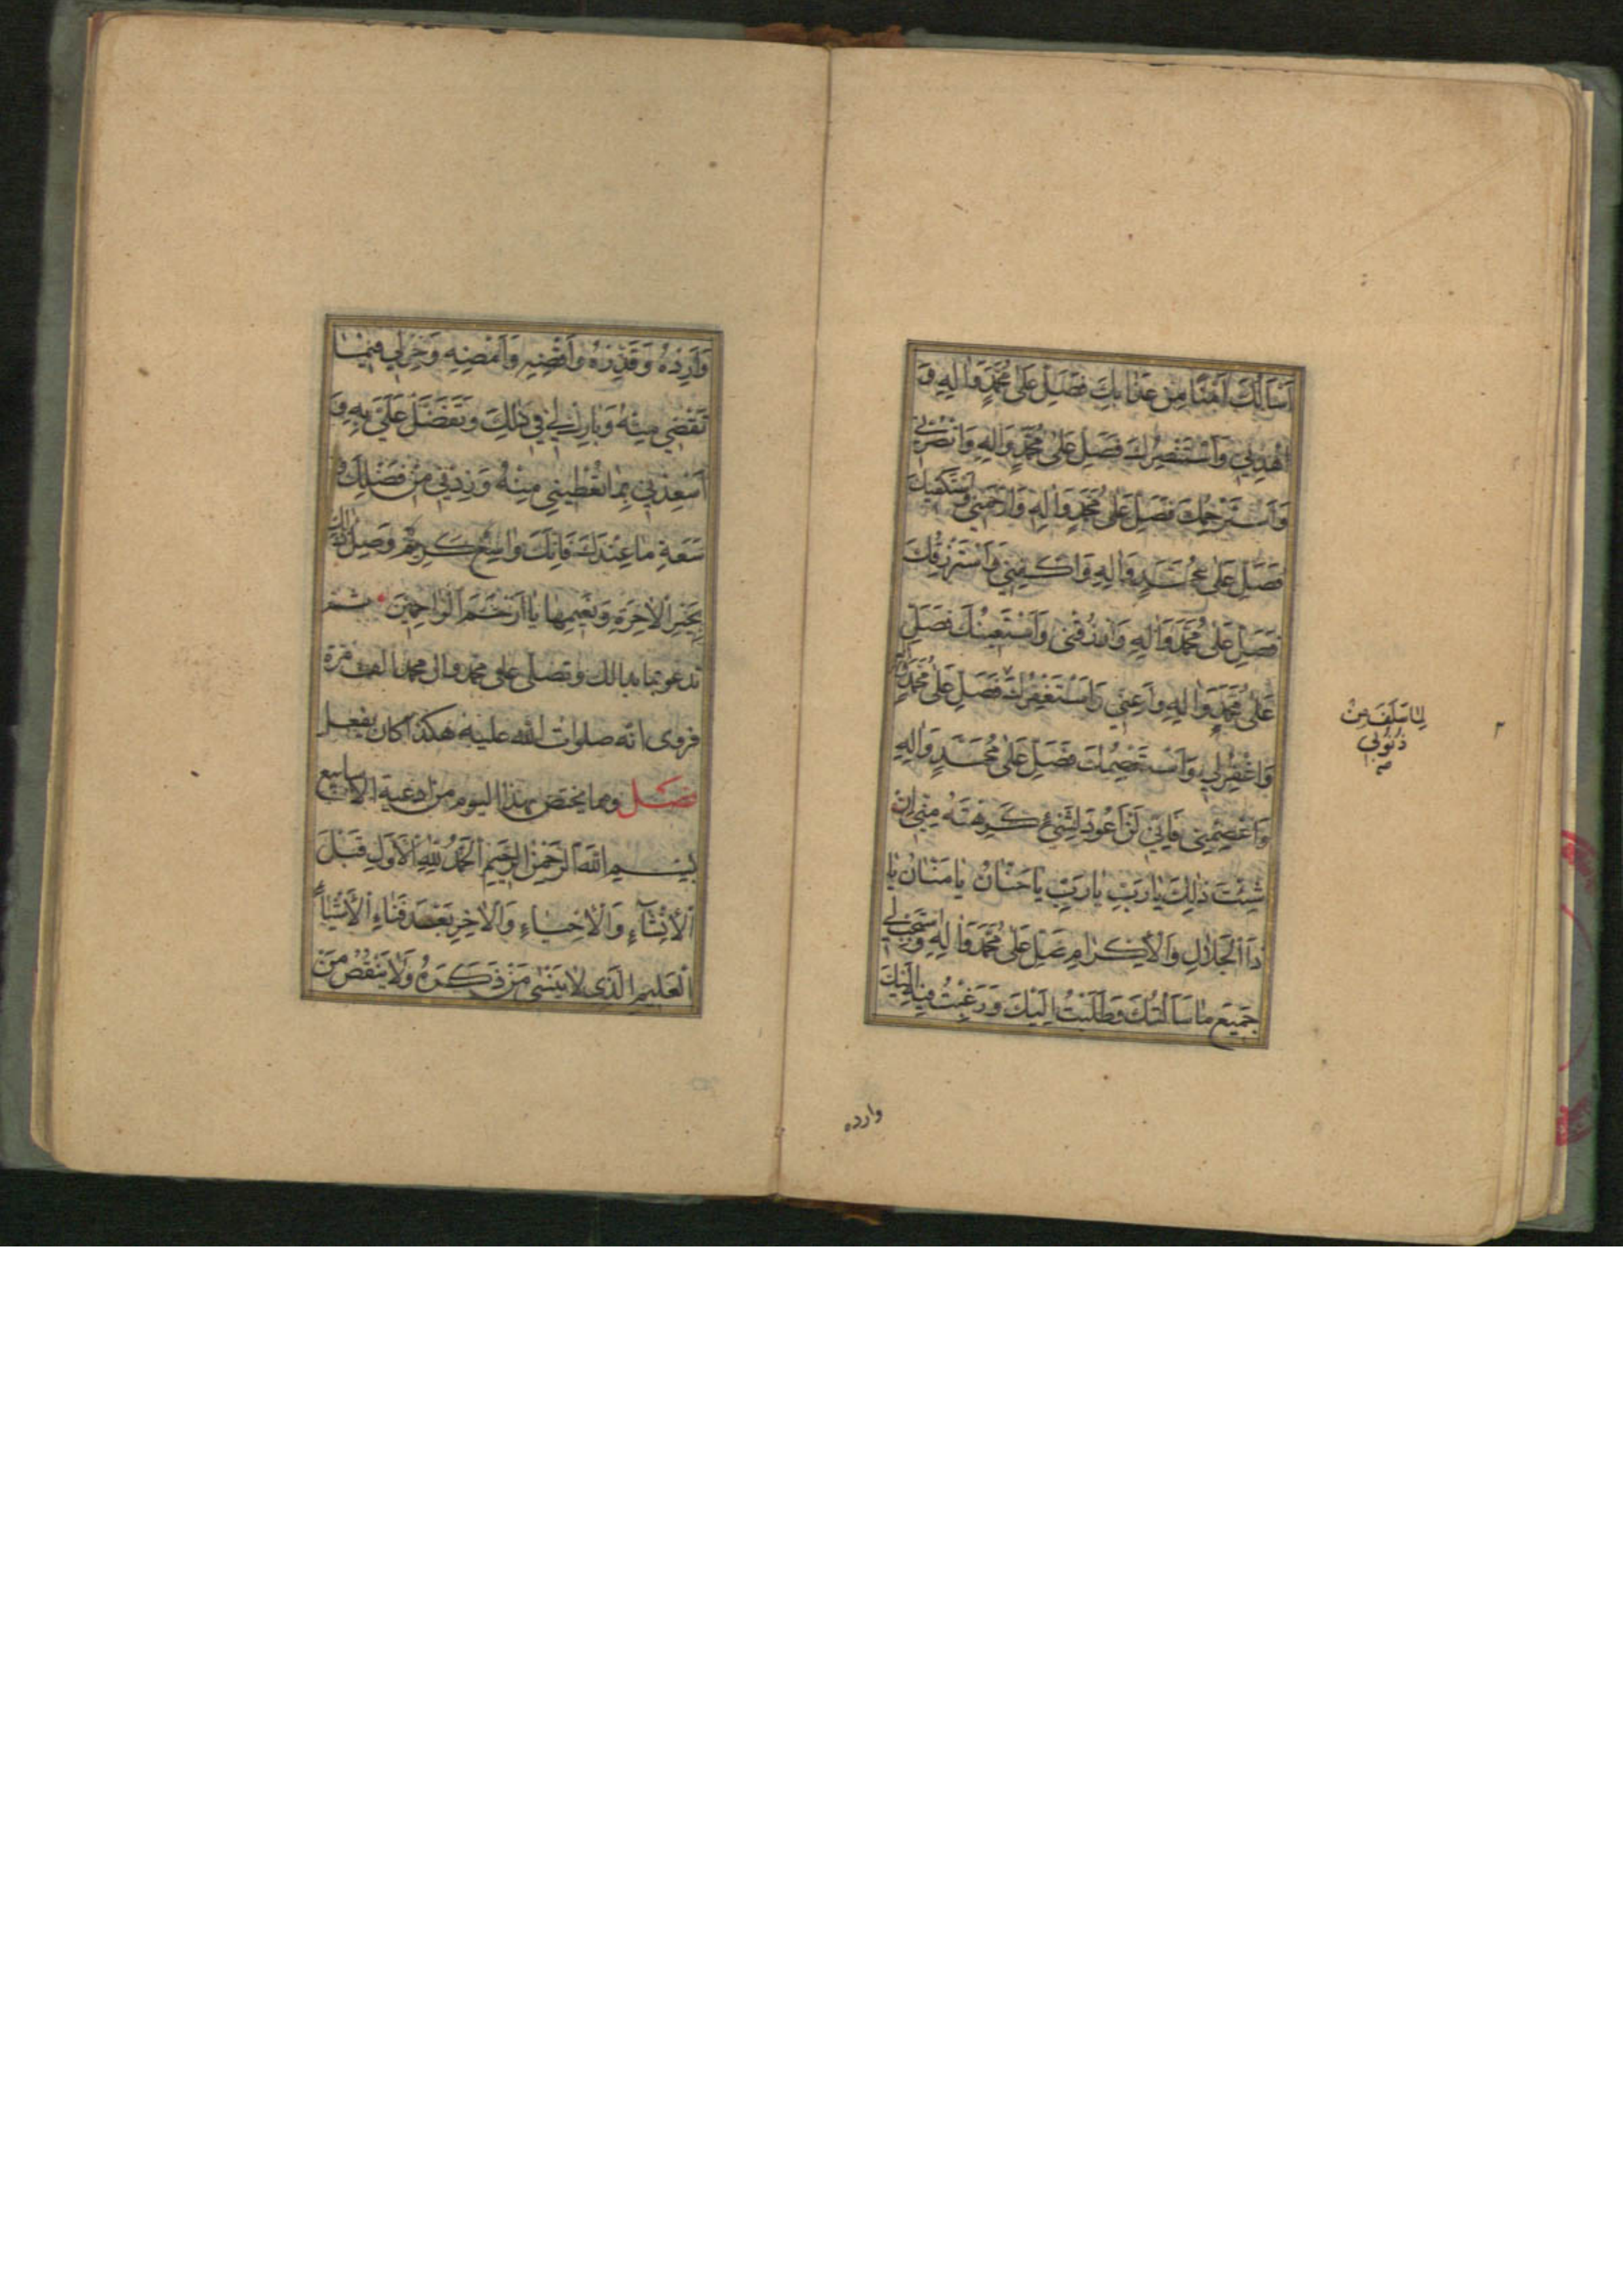 اَسْأَلُكَ اَمْنًا مِنْ عَذَابِكَ فَصَلِّ عَلى مُحَمَّدٍ وَالِهِ وَ
اهْدِنِي وَاَسْتَنْصِرُكَ فَصَلِّ عَلى مُحَمَّدٍ وَالِهِ وَانْصُرْنِي
وَاَسْتَرْحِمُكَ فَصَلِّ عَلى مُحَمَّدٍ وَالِهِ وَارْحَمْنِي وَاَسْتَكْفِيكَ
فَصَلِّ عَلى مُحَمَّدٍ وَالِهِ وَاكْفِنِي وَاَسْتَرْزِقُكَ
فَصَلِّ عَلى مُحَمَّدٍ وَالِهِ وَارْزُقْنِي وَاَسْتَعِينُكَ فَصَلِّ
عَلى مُحَمَّدٍ وَالِهِ وَاَعِنِّي وَاَسْتَغْفِرُكَ فَصَلِّ عَلى مُحَمَّدٍ وَالِهِ
وَاغْفِرْ لِي وَاَسْتَعْصِمُكَ فَصَلِّ عَلى مُحَمَّدٍ وَالِهِ
وَاعْصِمْنِي فَاِنِّي لَنْ اَعُودَ لِشَيْءٍ كَرِهْتَهُ مِنِّي اِنْ
شِئْتَ ذلِكَ يَا رَبِّ يَا رَبِّ يَا حَنَّانُ يَا مَنَّانُ يَا
ذَا الْجَلَالِ وَالْاِكْرَامِ صَلِّ عَلى مُحَمَّدٍ وَالِهِ وَاسْتَجِبْ لِي
جَمِيعَ مَا سَاَلْتُكَ وَطَلَبْتُ اِلَيْكَ وَرَغِبْتُ فِيهِ اِلَيْكَ
لِمَا سَلَفَ مِنْ
ذُنُوبِي
صح
وارده
وَاَرِدْهُ وَقَدِّرْهُ وَاقْضِهِ وَاَمْضِهِ وَخِرْ لِي فِيمَا
تَقْضِي مِنْهُ وَبَارِكْ لِي فِي ذلِكَ وَتَفَضَّلْ عَلَيَّ بِهِ وَ
اَسْعِدْنِي بِمَا تُعْطِينِي مِنْهُ وَزِدْنِي مِنْ فَضْلِكَ وَ
سَعَةِ مَا عِنْدَكَ فَاِنَّكَ وَاسِعٌ كَرِيمٌ وَصِلْ ذلِكَ
بِخَيْرِ الْاخِرَةِ وَنَعِيمِهَا يَا اَرْحَمَ الرَّاحِمِينَ ثم
تدعو بما بدالك وتصلّي على محمد وال محمد الف مرة
فروى انه صلوات الله عليه هكذا كان يفعل
فصل ومما يختص بهذا اليوم من ادعية الاسابيع
بِسْمِ اللهِ الرَّحْمنِ الرَّحِيمِ اَلْحَمْدُ لِلّهِ الْاَوَّلِ قَبْلَ
الْاِنْشَآءِ وَالْاِحْيَاءِ وَالْاخِرِ بَعْدَ فَنَاءِ الْاَشْيَآءِ
الْعَلِيمِ الَّذِي لَا يَنْسى مَنْ ذَكَرَهُ وَلَا يَنْقُصُ مَنْ